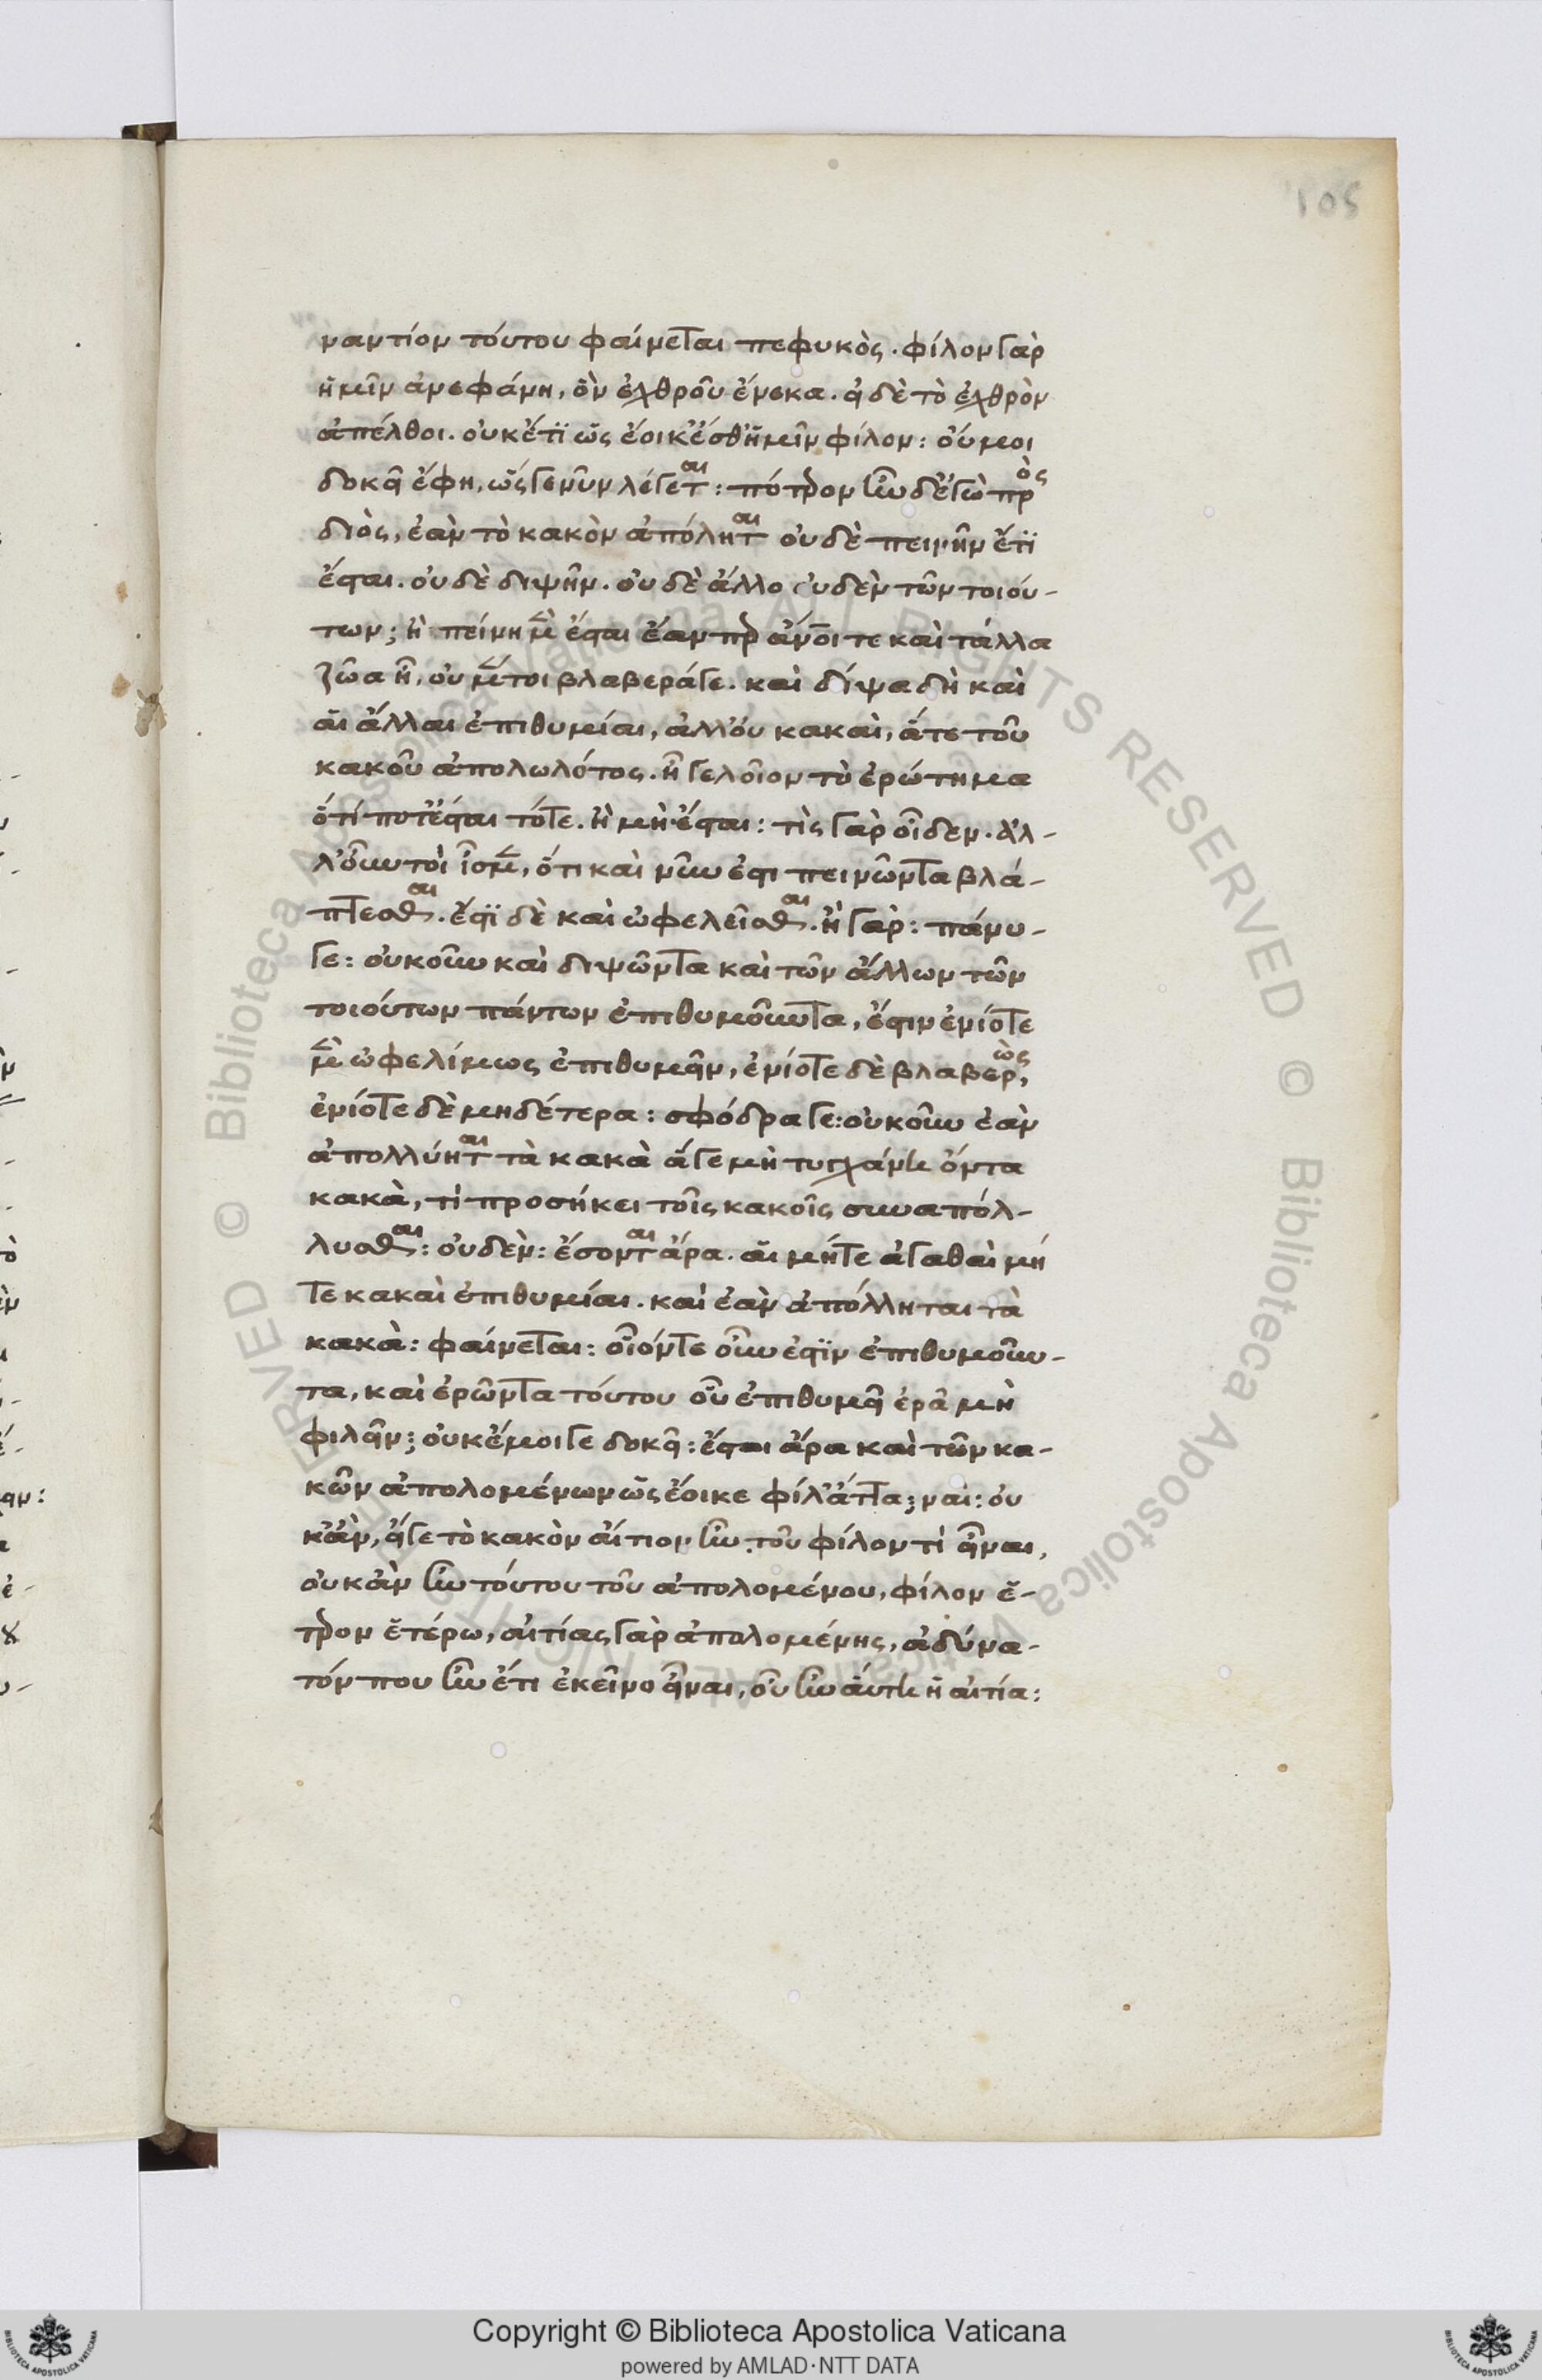 105
ναντίον τούτου φαίνεται πεφυκὸς. φίλον γαρ
ἡμῖν ἀνεφάνη, ὂν ἐχθροῦ ἕνεκα. εἰ δὲ τὸ ἐχθρὸν
ἀπέλθοι. οὐκέτι ὡς ἔοικ' ἔσθ' ἡμῖν φίλον: οὔ μοι
δοκεῖ ἔφη, ὥς γε νῦν λέγεται: πότερον ἦν δ' ἐγὼ πρὸς
διὸς, ἐὰν τὸ κακὸν ἀπόληται οὐδὲ πεινῆν ἔτι
ἔσται. οὐδὲ διψῆν. οὐδὲ ἄλλο οὐδὲν τῶν τοιού-
των; ἢ πείνη μὲν ἔσται ἐάν περ ἄνοι τε καὶ τἄλλα
ζῶα ἦ, οὐ μέντοι βλαβερά γε. καὶ δίψα δὴ καὶ
αἱ ἄλλαι ἐπιθυμίαι, ἀλλ' οὐ κακαὶ, ἅτε τοῦ
κακοῦ ἀπολωλότος. ἢ γελοῖον τὸ ἐρώτημα
ὅτί ποτ' ἔσται τότε. ἢ μὴ ἔσται: τίς γὰρ οἶδεν. ἀλ-
λ' οὖν τοὶ ἴσμεν, ὅτι καὶ νῦν ἔστι πεινῶντα βλά-
πτεσθαι. ἔστι δὲ καὶ ὠφελεῖσθαι. ἢ γὰρ: πάνυ-
γε: οὐκοῦν καὶ διψῶντα καὶ τῶν ἄλλων τῶν
τοιούτων πάντων ἐπιθυμοῦντα, ἔστιν ἐνίοτε
μὲν ὠφελίμως ἐπιθυμεῖν, ἐνίοτε δὲ βλαβερῶς,
ἐνίοτε δὲ μηδέτερα: σφόδρα γε: οὐκοῦν ἐὰν
ἀπολλύηται τὰ κακὰ ἅ γε μὴ τυγχάνει ὄντα
κακὰ, τί προσήκει τοῖς κακοῖς συναπόλ-
λυσθαι: οὐδὲν: ἔσονται ἄρα. αἱ μήτε ἀγαθαὶ μή
τε κακαὶ ἐπιθυμίαι. καὶ ἐὰν ἀπόλληται τὰ
κακὰ: φαίνεται: οἷόν τε οὖν ἐστὶν ἐπιθυμοῦν-
τα, καὶ ἐρῶντα τούτου οὗ ἐπιθυμεῖ ἐρᾶ μὴ
φιλεῖν; οὐκ ἔμοιγε δοκεῖ: ἔσται ἄρα καὶ τῶν κα-
κῶν ἀπολομένων ὡς ἔοικε φίλ' ἄττα; ναὶ: οὐ
κ' ἂν, εἴ γε τὸ κακὸν αἴτιον ἦν τοῦ φίλον τί εἶναι,
οὐκ ἂν ἦν τούτου τοῦ ἀπολομένου, φίλον ἕ-
τερον ἑτέρω, αἰτίας γὰρ ἀπολομένης, ἀδύνα-
τόν που ἦν ἔτι ἐκεῖνο εἶναι, οὗ ἦν αὕτη ἡ αἰτία:
Copyright © Biblioteca Apostolica Vaticana
powered by AMLAD·NTT DATA